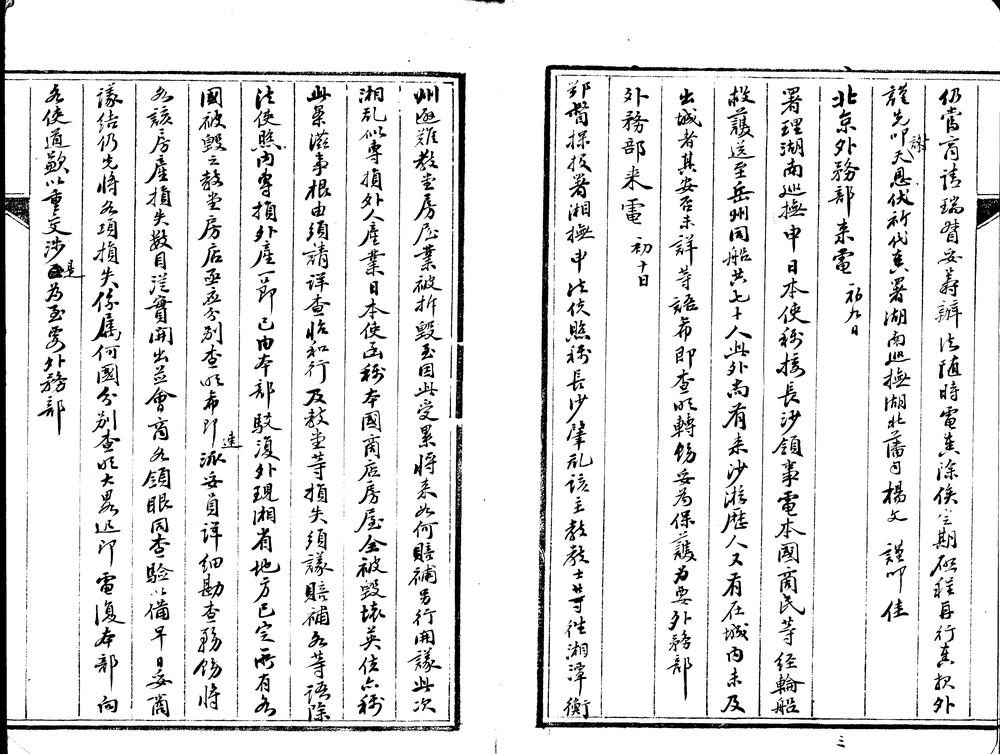 仍當商請瑞督妥籌辦法随時電奏除俟定期啟程再行奏报外
謹先叩謝天恩伏祈代奏署湖南巡撫湖北藩司楊文 謹叩佳
北京外務部来電 初九日
署理湖南巡撫申日本使称接長沙領事電本國商民等經輪船
救護送至岳州同船共七十人此外尚有来沙游歷人又有在城内未及
出城者其安否未詳等語希即查明轉飭妥為保護為要外務部
外務部来電 初十日
鄂督探投署湘撫申法使照称長沙肇乱該主教教士等往湘潭衡
州避難教堂房屋業被拆毀至因此受累将来如何賠補另行開議此次
湘乱似專損外人產業日本使函称本國商店房屋全被毀壞英使亦称
此案滋事根由須請详查怡和行及教堂等損失須議賠補各等语除
法使照内專損外產一節已由本部駁復外現湘省地方已定所有各
國被毀之教堂房店亟应分别查明希即速派妥員详細勘查務飭将
各該房產損失数目從實開出並會商各領眼同查驗以備早日妥商
議結仍先将各項損失係属何國分别查明大畧迅即電復本部向
各使道歉以重交涉是為至要外務部
三